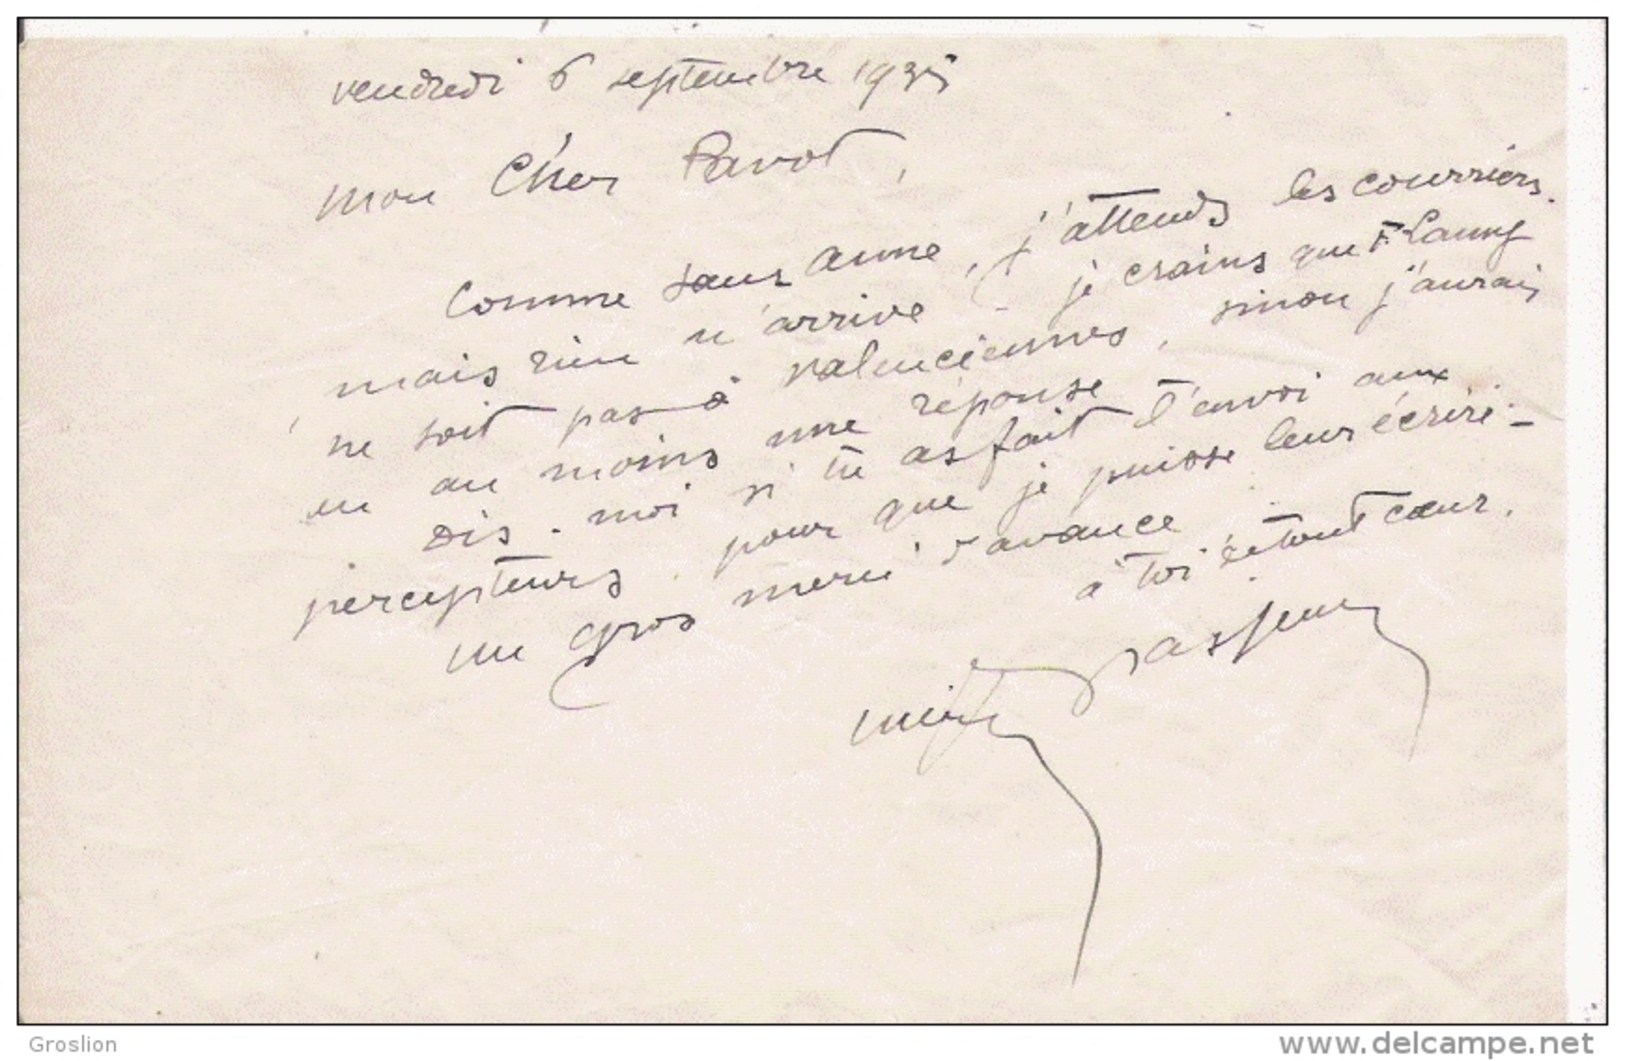 vendredi 6 septembre 1935
mon Cher Pavot,
Comme sœur anne, j'attends les courriers.
mais rien n'arrive - je crains que F. Lamy
ne soit pas à valenciennes, sinon j'aurais
eu au moins une réponse
Dis-moi si tu as fait l'envoi aux
percepteurs pour que je puisse leur écrire -
un gros merci d'avance
à toi de tout cœur.
Passeur
Groslion
www.delcampe.net